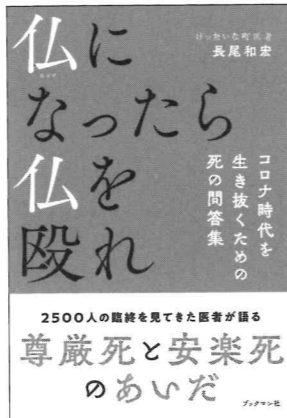 仏に
なったら
仏を
殴れ
けったいな町医者
長尾和宏
コロナ時代を
生き抜くための
死の問答集
2500人の臨終を見てきた医者が語る
尊厳死と安楽死
のあいだ
ブックマン社